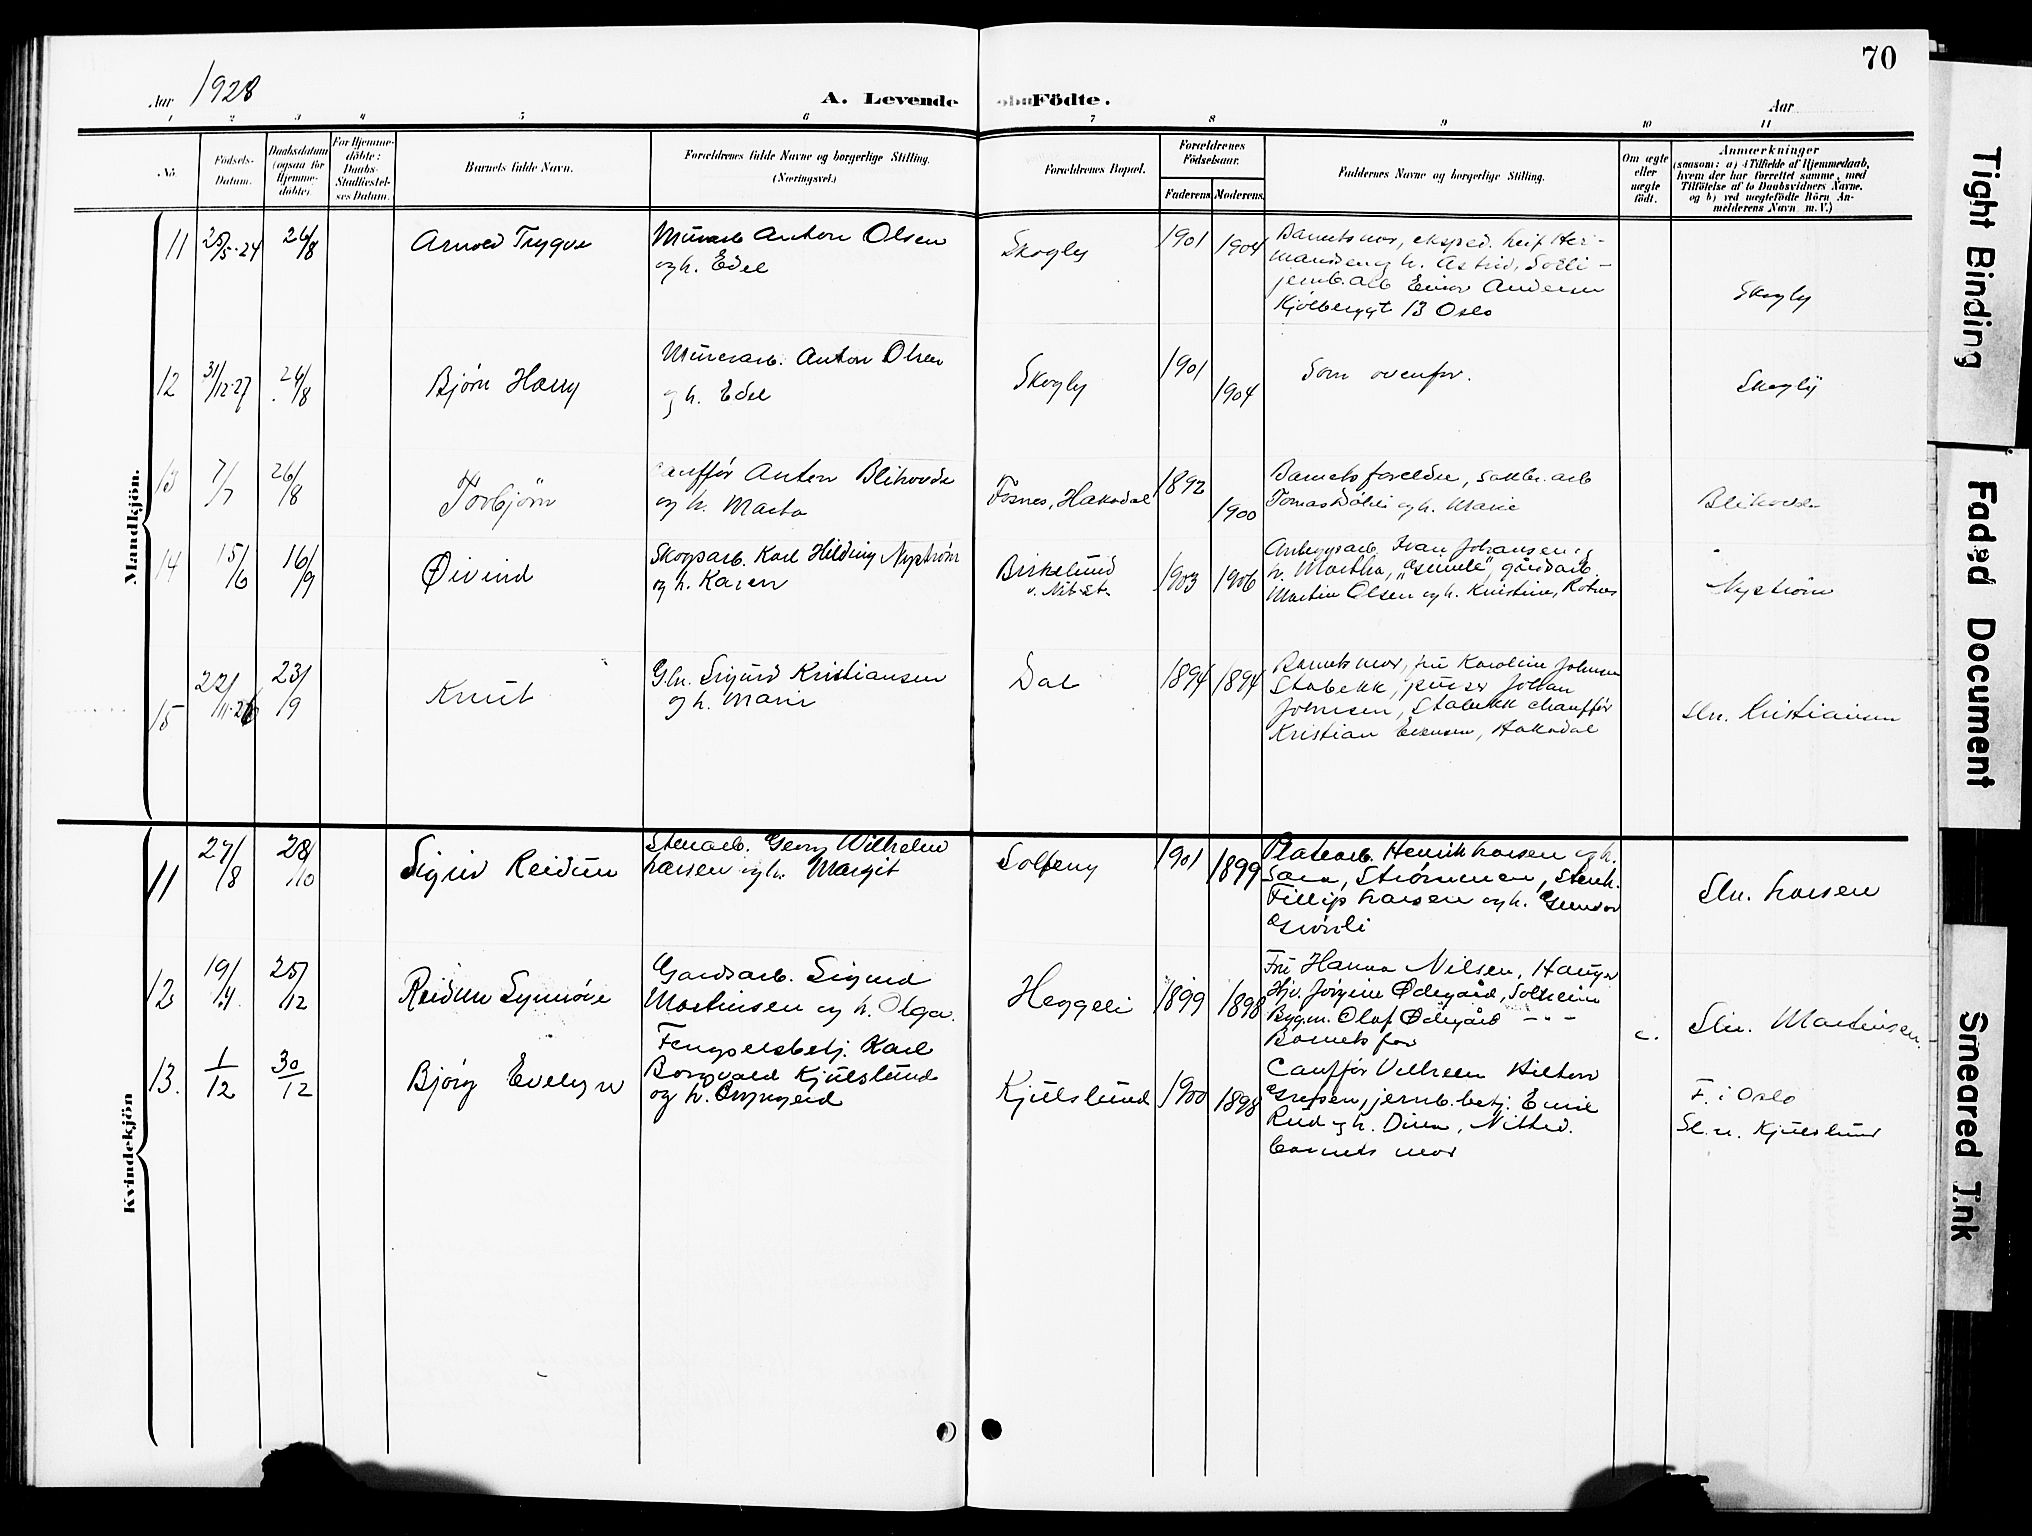 70
Aar 1928
A. Levende Födte.
Aar
1 2 3 4 5 6 7 8 9 10 11
No.
Födsels-
Datum.
Daabsdatum
(ogsaa for
Hjemme-
döbte)
For Hjemme-
döbte:
Daabs-
Stadfæstel-
ses Datum.
Barnets fulde Navn.
Forældrenes fulde Navne og borgerlige Stilling.
(Næringsvei.)
Forældrenes Bopæl.
Forældrenes
Födselsaar.
Faderens Moderens
Faddernes Navne og borgerlige Stilling.
Om ægte
eller
uægte
födt.
Anmærkninger
(saasom: a) i Tilfælde af Hjemmedaab,
hvem der har forrettet samme, med
Tilföielse af to Daabsvidners Navne.
og b) ved uægtefödte Börn An-
melderens Navn m. V.)
Mandkjön.
11 25/5-24 26/8 Arnold Trygve
Murarb. Anton Olsen
og h. Edel
Skogly 1901 1904
Barnets mor, eksped. Leif Her-
mansen og h. Astrid, Solli-
jernb.arb Einar Andersen
Kjølberggt 13 Oslo
Skogly
12 31/12-27 26/8 Bjørn Harry
Murerarb. Anton Olsen
og h. Edel
Skogly 1901 1904
Som ovenfor.
Skogly
13 7/7 26/8 Torbjørn
Chauffør Anton Blikovde
og h. Marta
Fosnes, Hakadal 1892 1900
Barnets foreldre, arb
Tomas og h. Marie
14 15/6 16/9 Øivind
Skogsarb. Karl Hilding Nystrøm
og h. Karen
Birkelund
v. Nit. St. 1903 1906
Anleggsarb. Ivar Johansen og
h. Martha, gårdsarb.
Martin Olsen og h. Kristine, Rotnes
Nystrøm
15 22/11-26 23/9 Knut
Gbr. Sigurd Kristiansen
og h. Marie
Dal 1894 1894
Barnets mor, fru Karoline Johnsen
Stabekk, Johan
Johnsen, Stabekk chauffør
Kristian Evensen, Hakadal
Sln. Kristiansen
Kvindekjön
11 27/8 28/10 Sigrid Reidun
Stenarb. Georg Wilhelm
Larsen og h. Margit
Solberg 1901 1899
Platearb. Henrik Larsen og h.
Sara, Strømmen, Stenh.
Fillip Larsen og h. Gunvor
Grønli
Sln. Larsen
12 19/4 25/12 Reidun Synnøve
Gardsarb. Sigurd
Martinsen og h. Olga.
Heggeli 1899 1898
Fru Hanna Nilsen, Hauger
Hjv. Jørgine Ødegård, Solheim
Bygm. Olaf Ødegård - " -
Barnets far
Sln. Martinsen.
13. 1/12 30/12 Bjørg Evelyn
Fengselsbetj. Karl
Borgvald Kjulslund
og h. Bryngerd
Kjulslund 1900 1898
Cauffør Vilhelm Hilton
Grefsen, jernb. betj. Emil
Ruud og h. Dina, Nitted.
Barnets mor
F. i Oslo
Sl. n. Kjulslund
Tight Binding
Faded Document
Smeared Ink